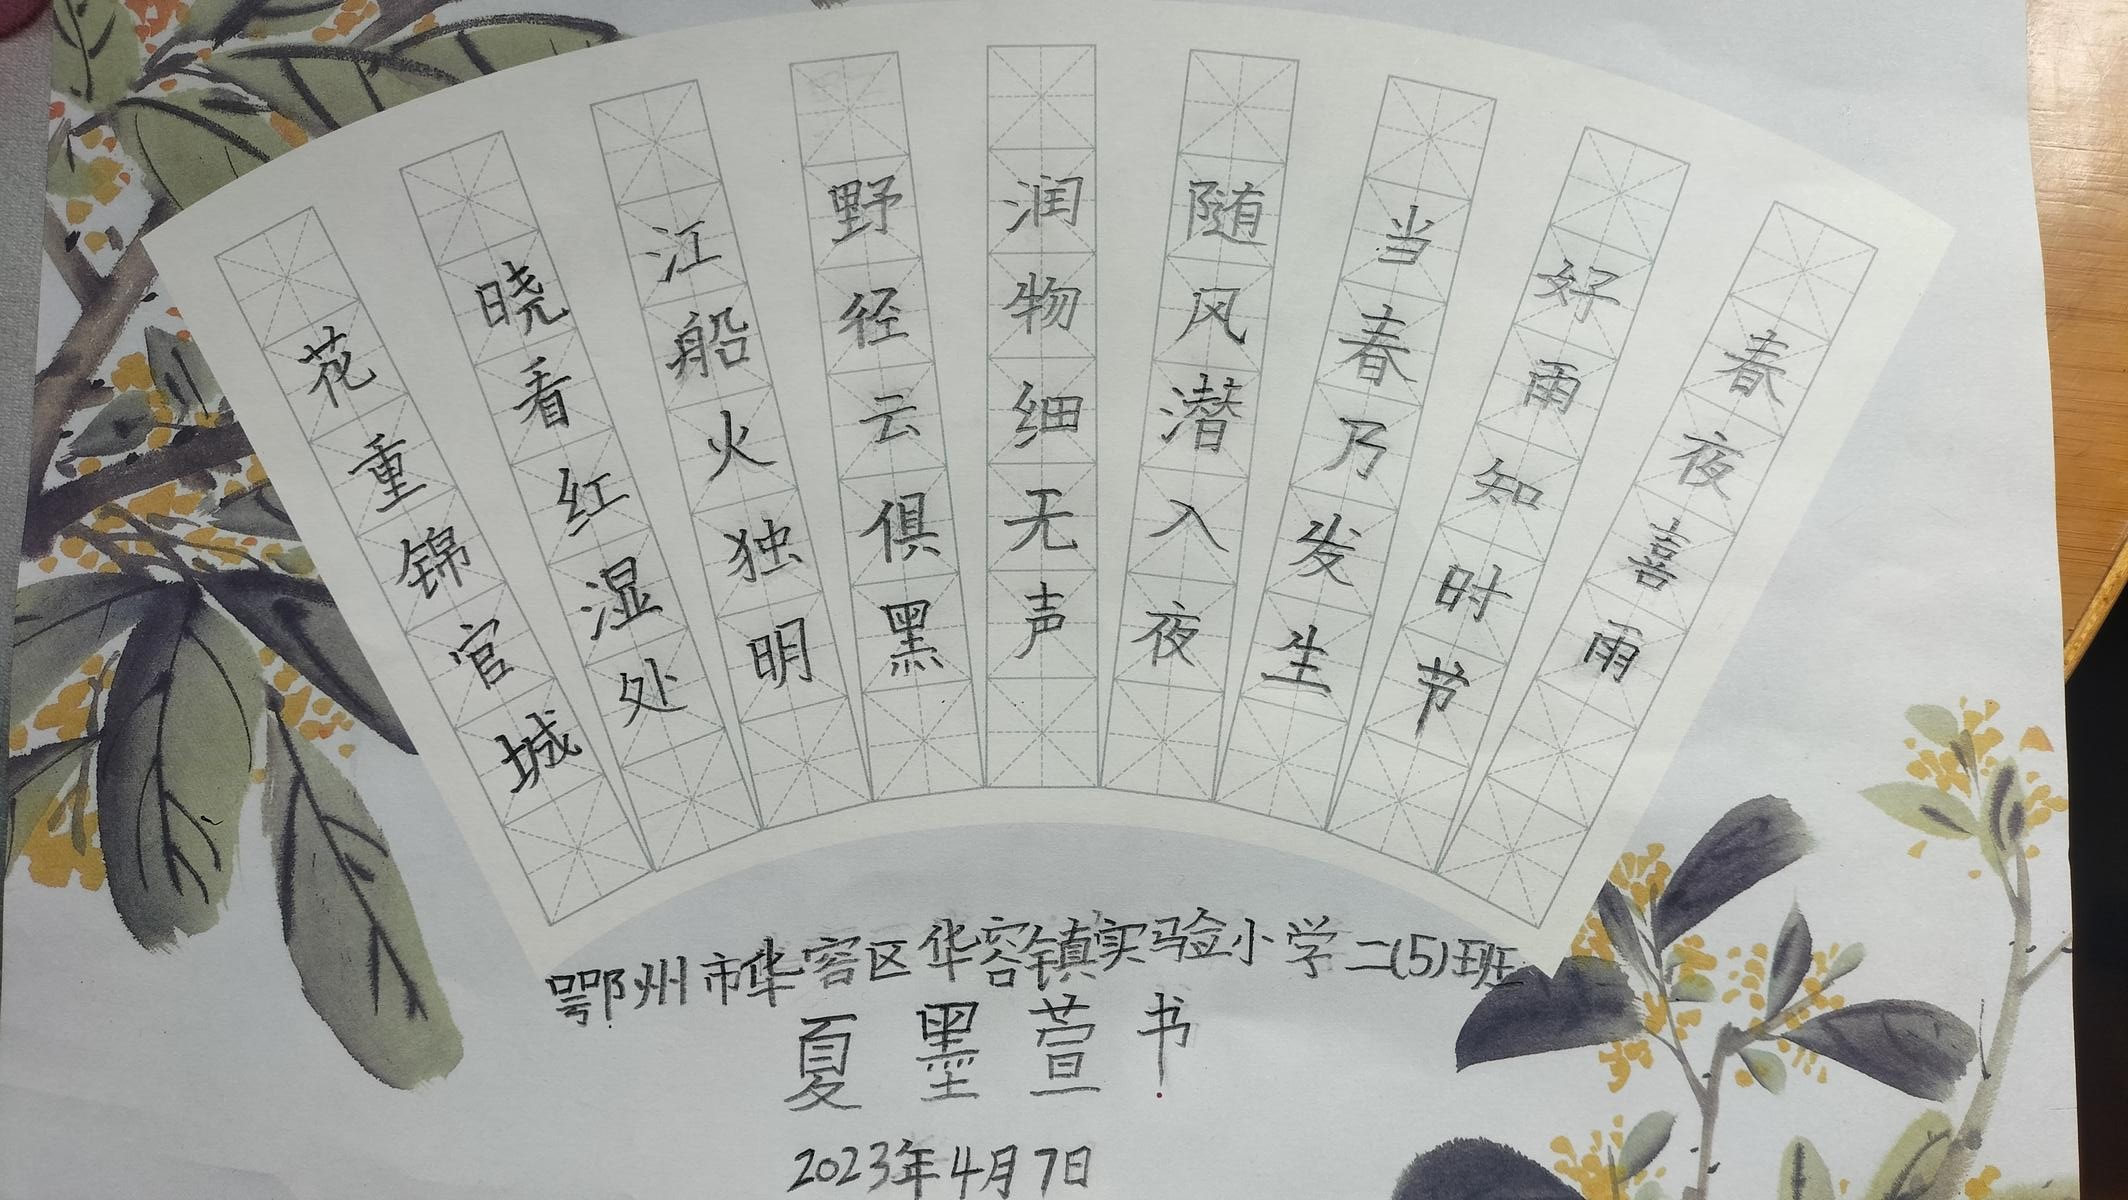 春夜喜雨
好雨知时节
当春乃发生
随风潜入夜
润物细无声
野径云俱黑
江船火独明
晓看红湿处
花重锦官城
鄂州市华容区华容镇实验小学二(5)班
夏墨萱书
2023年4月7日